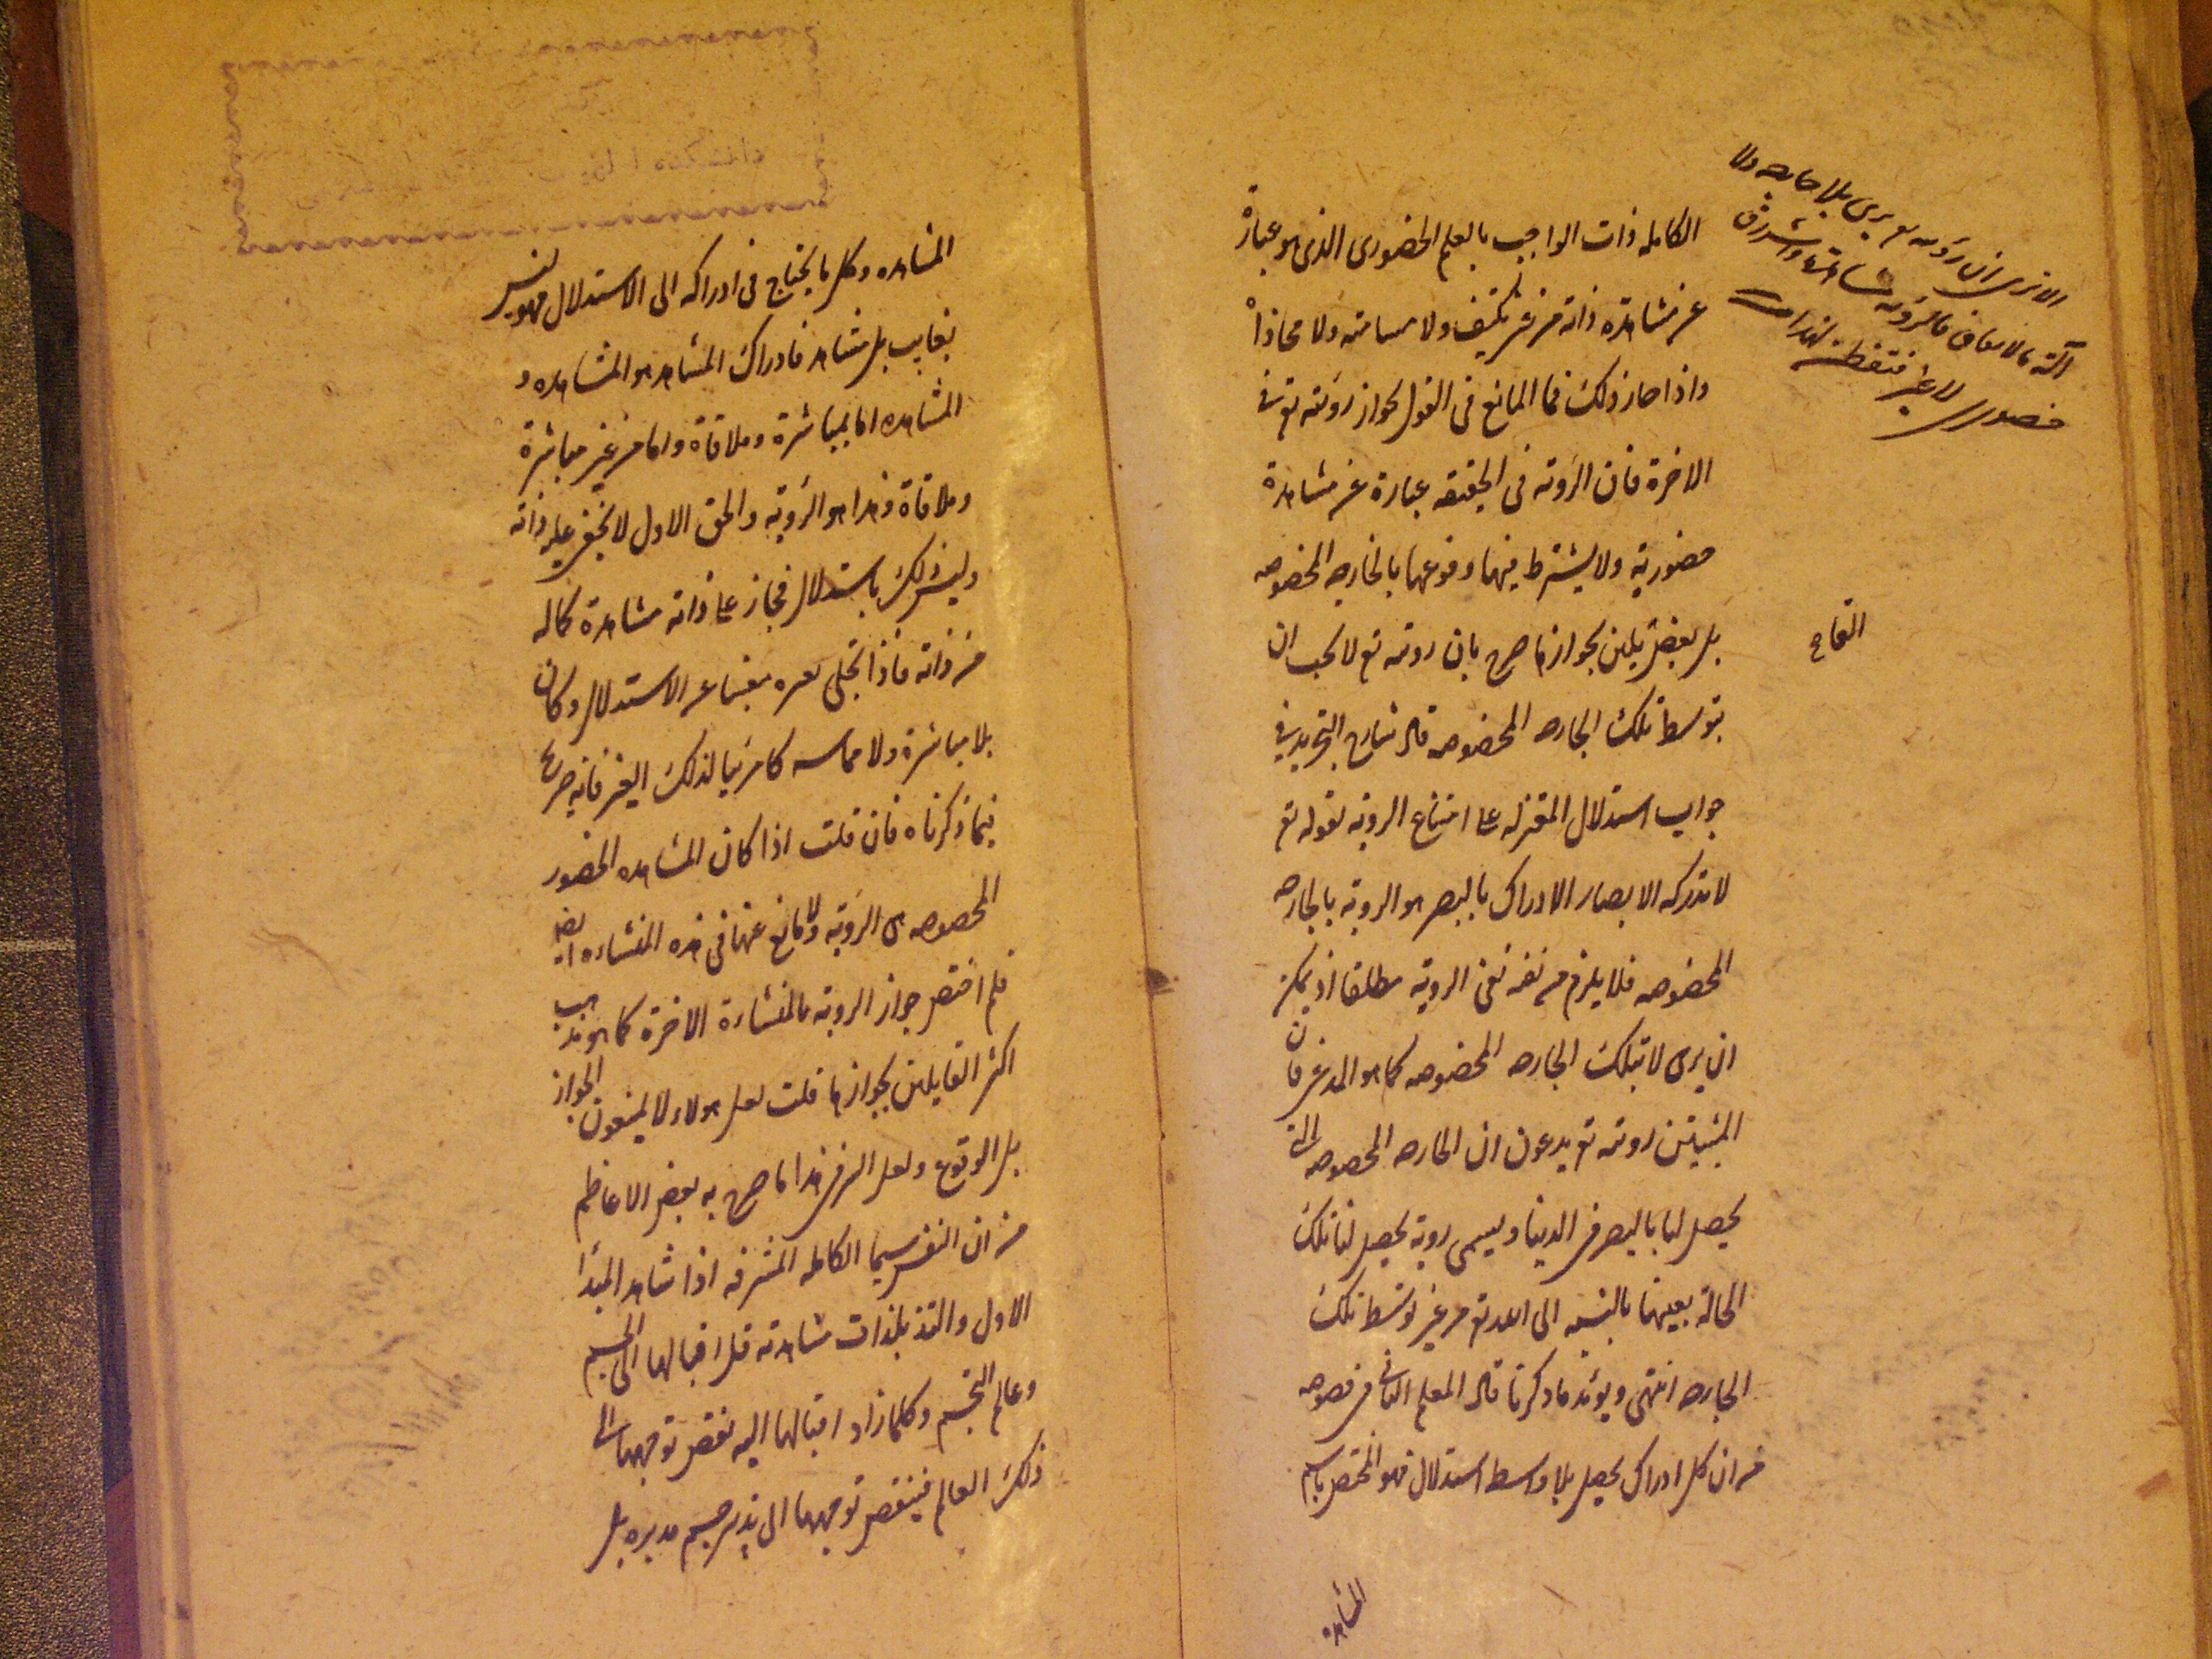 الكامله ذات الواجب بالعلم الحضورى الذى هو عبارة
عن مشاهدة ذاته من غير تكيف ولا مسامته ولا محاذاة
واذا جاز ذلك فما المانع فى القول بجواز رؤيته تع فى
الاخرة فان الرؤية فى الحقيقه عبارة عن مشاهدة
حضورية ولا يشترط فيها وقوعها بالجارحه المخصوصه
بل بعض القايلين بجوازها صرح بان رويته تع لا يجب ان
بتوسط تلك الجارحه المخصوصه قال شارح التجريد فى
جواب استدلال المعتزله على امتناع الرويه بقوله تع
لا تدركه الابصار الادراك بالبصر هو الرويه بالجارحه
المخصوصه فلا يلزم من نفيه نفى الرويه مطلقا اذ يمكن
ان يرى لا بتلك الجارحه المخصوصه كما هو المدعى فان
المثبتين رويته تع يدعون ان الحاله المخصوصه التى
يحصل لنا بالبصر فى الدنيا ويسمى روية يحصل لنا تلك
الحالة بعينها بالنسبه الى الله تع من غير توسط تلك
الجارحه انتهى ويؤيد ما ذكرنا قال المعلم الثانى فى فصوصه
من ان كل ادراك يحصل بلا واسط استدلال فهو المختص باسم
المشاهده
الا ترى ان رؤيته تع يرى بلا جارحه ولا
آلة بالاتفاق فالرؤيه مشاهدة واشراق
حضورى لا غير فتفطن لهذا
المشاهده وكل ما يحتاج فى ادراكه الى الاستدلال فهو ليس
بغايب بل مشاهد فادراك المشاهد هو المشاهده و
المشاهده اما بمباشرة وملاقاة واما من غير مباشرة
وملاقاة وهذا هو الرؤية والحق الاول لا يخفى عليه ذاته
وليس ذلك باستدلال فجاز على ذاته مشاهدة كماله
من ذاته فاذا تجلى لغيره مغنيا عن الاستدلال وكان
بلا مباشرة ولا مماسه كان مرئيا لذلك الغير فانه صريح
فيما ذكرناه فان قلت اذا كان المشاهده الحضور
المخصوصه هى الرؤية ولا مانع عنها فى هذه النشاءه ايضا
فلم اختص جواز الروية بالنشاءة الاخرة كما هو مذهب
اكثر القايلين بجوازها قلت لعل هولاء لا يمنعون الجواز
بل الوقوع ولعل السر فى هذا ما صرح به بعض الاعاظم
من ان النفس سيما الكامله المشرفه اذا شاهد المبدأ
الاول والتذ بلذات مشاهدته قل اقبالها الى الجسم
وعالم التجسم وكلما زاد اقبالها اليه نقص توجهها الى
ذلك العالم فينقص توجهها الى تدبير جسم مدبره بل